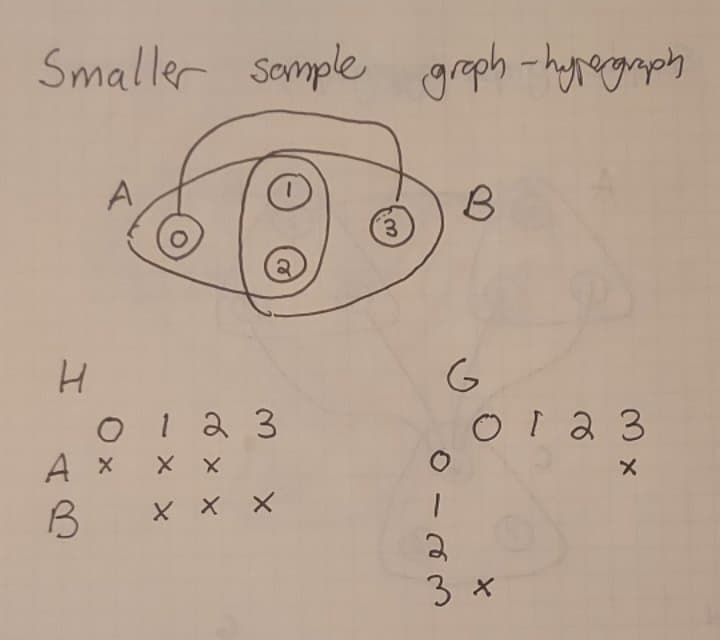 Smaller sample graph-hypergraph
A 0 1 2 3 B
H
0 1 2 3
A x x x
B x x x
G
0 1 2 3
0 x
1
2
3 x